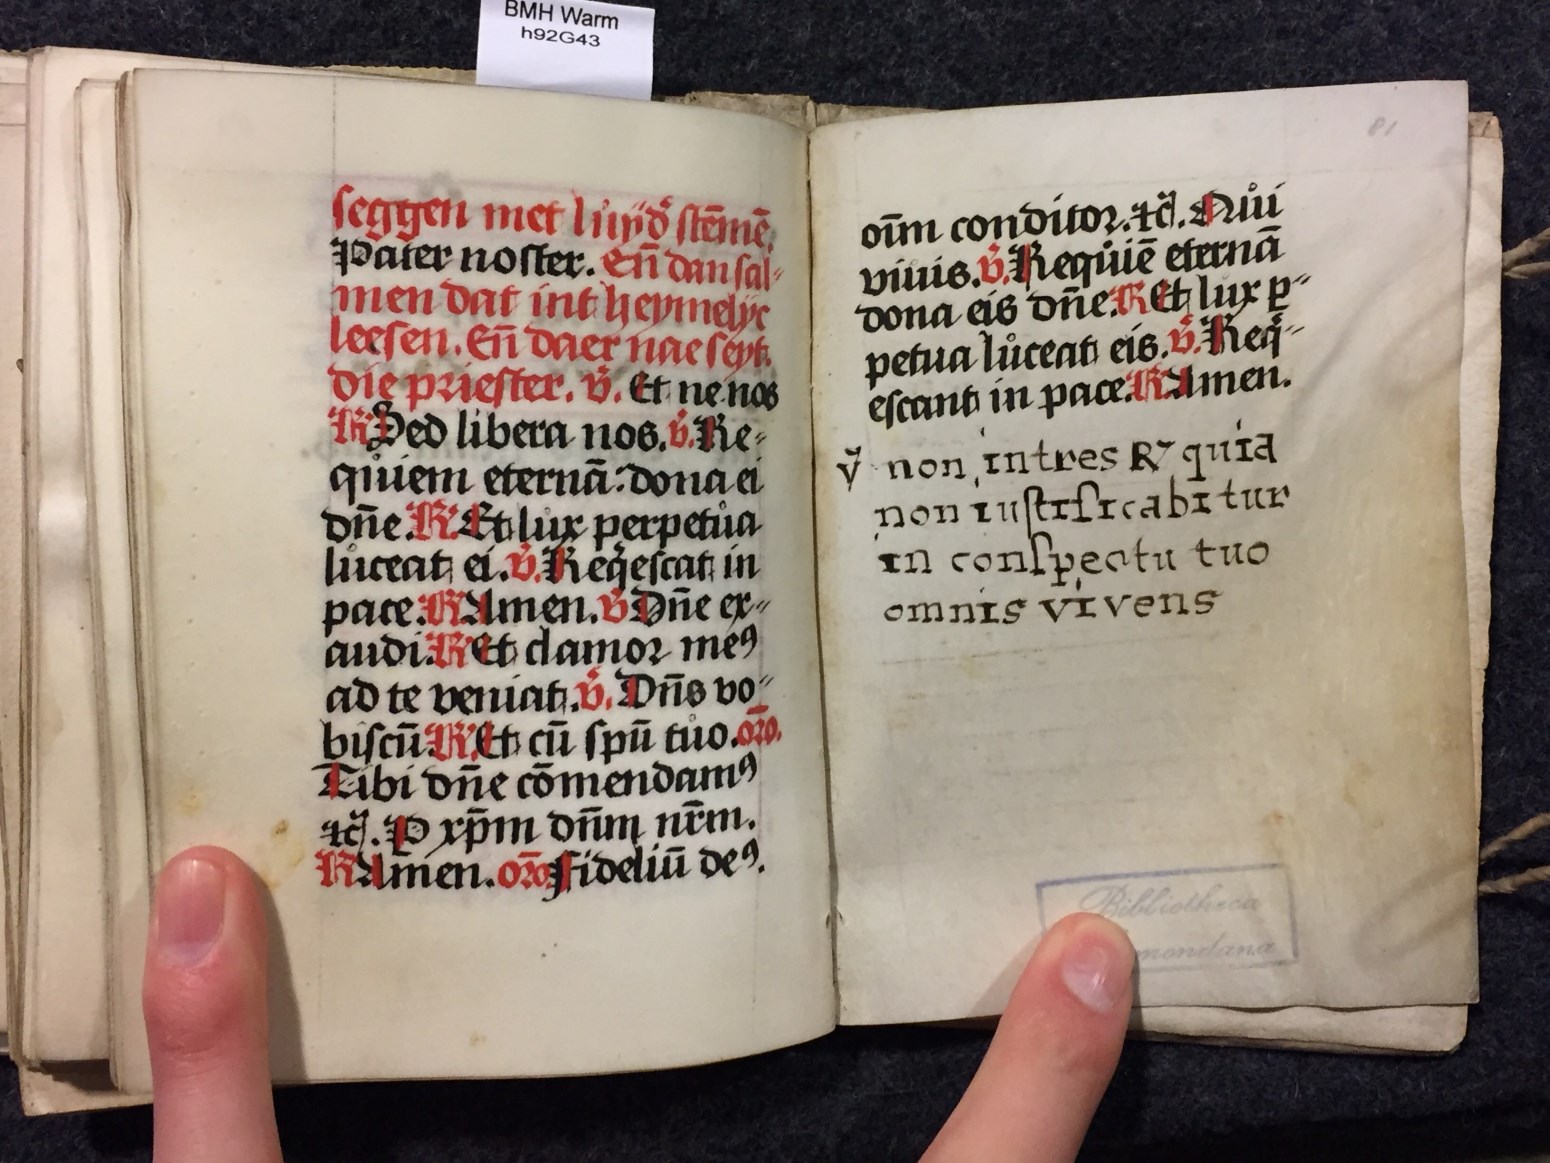 BMH Warm
h92G43
seggen met luyd' stēmē.
Pater noster. Eñ dan sal-
men dat int heymelijc
leesen. Eñ daer nae seyt.
die priester. v̄. Et ne nos
R Sed libera nos. v̄. Re-
quiem eternā: dona ei
dñe. R. Et lux perpetua
luceat ei. v̄. Reqꝰescat in
pace. R Amen. v̄ Dñe ex-
audi. R Et clamor meꝰ
ad te veniat. v̄. Dñs vo-
biscū R. Et cū spū tuo. oīo.
Tibi dñe cōmendamꝰ
⁊c̄. P xp̄m dñm nr̄m.
R Amen. oīo Fideliū deꝰ.
81
oīm conditor. ⁊c̄. Qui
viuis. v̄. Requiē eternā
dona eis dñe. R Et lux p̱-
petua luceat eis. v̄. Reqͥ-
escant in pace. R Amen.
v̄ non intres R quia
non iustificabitur
in conspectu tuo
omnis vivens
Bibliotheca
mondana